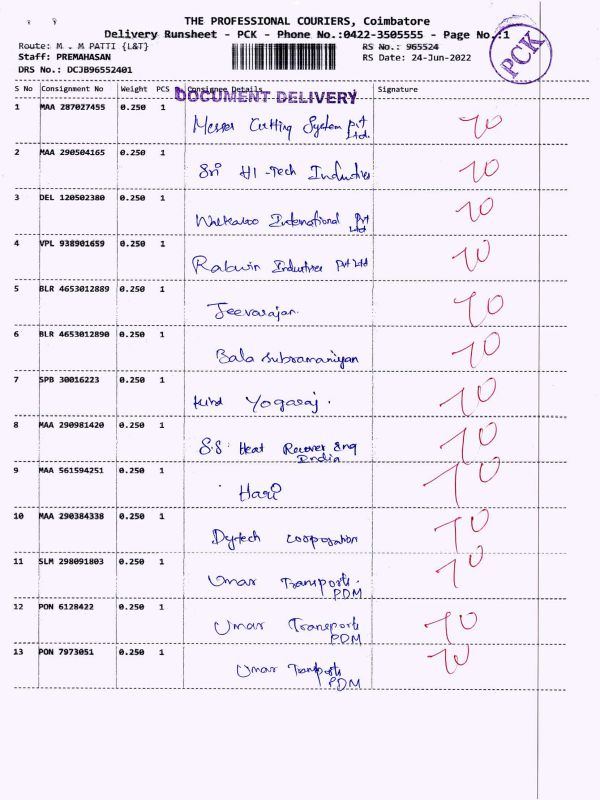 THE PROFESSIONAL COURIERS, Coimbatore
Delivery Runsheet - PCK - Phone No.:0422-3505555 - Page No.:1
Route: M . M PATTI {L&T}
RS No.: 965524
PCK
Staff: PREMAHASAN
RS Date: 24-Jun-2022
DRS No.: DCJB96552401
S No Consignment No Weight PCS Consignee Details Signature
DOCUMENT DELIVERY
1 MAA 287027455 0.250 1
Messer Cutting System Pvt Ltd. 70
2 MAA 290504165 0.250 1
Sri HI-Tech Industries 70
3 DEL 120502380 0.250 1
Walkaroo International Pvt Ltd 70
4 VPL 938901659 0.250 1
Industries Pvt Ltd 70
5 BLR 4653012889 0.250 1
Jeevarajan. 70
6 BLR 4653012890 0.250 1
Bala Subramaniyan 70
7 SPB 30016223 0.250 1
Yogaraj. 70
8 MAA 290981420 0.250 1
S.S. Heat Recover Eng 70
India
9 MAA 561594251 0.250 1
Hari 70
10 MAA 290384338 0.250 1
Dytech Cooporation 70
11 SLM 298091803 0.250 1
Umar Transports. 70
PDM
12 PON 6128422 0.250 1
Umar Transports 70
PDM
13 PON 7973051 0.250 1
Umar Transports 70
PDM